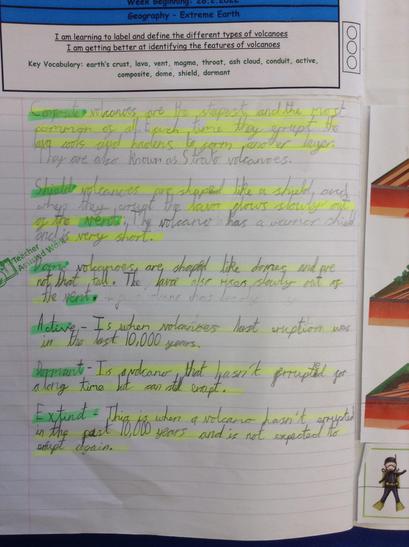 Week Beginning: 28.2.2022
Geography – Extreme Earth
I am learning to label and define the different types of volcanoes
I am getting better at identifying the features of volcanoes
Key Vocabulary: earth's crust, lava, vent, magma, throat, ash cloud, conduit, active,
composite, dome, shield, dormant
volcanoes are the and the most
common of all. Each time they erupt the
lava and hadens to form another layer.
They are also known as Strato volcanoes.
Shield volcanoes are shaped like a shield, and
when they erupt the lava flows slowly out
of the vent. The volcano has a shield
and is very short.
Teacher
Around World
volcanoes, are shaped like domes and are
not that tall. The lava also rises slowly out of
the vent.
Active - Is when volcanoes last eruption was
in the last 10,000 years.
Dormant - Is a volcano, that hasn't for
a long time but can still erupt.
- This is when a volcano hasn't erupted
in the past 10,000 years and is not expected to
erupt again.